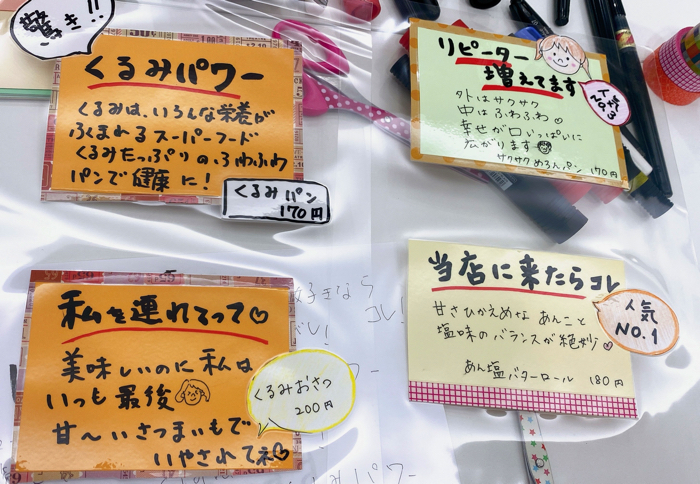 驚き!!
くるみパワー
くるみは、いろんな栄養が
ふくまれるスーパーフード
くるみたっぷりのふわふわ
パンで健康に!
くるみパン
170円
リピーター
増えてます
外はサクサク
中はふわふわ♡
幸せが口いっぱいに
広がります
サクサクめろんパン 170円
私を連れてって♡
美味しいのに私は
いつも最後
甘〜いさつまいもで
いやされてネ♡
くるみおさつ
200円
当店に来たらコレ
甘さひかえめな あんこと
塩味のバランスが絶妙♡
あん塩バターロール 180円
人気
NO.1
好きなら
コレ!